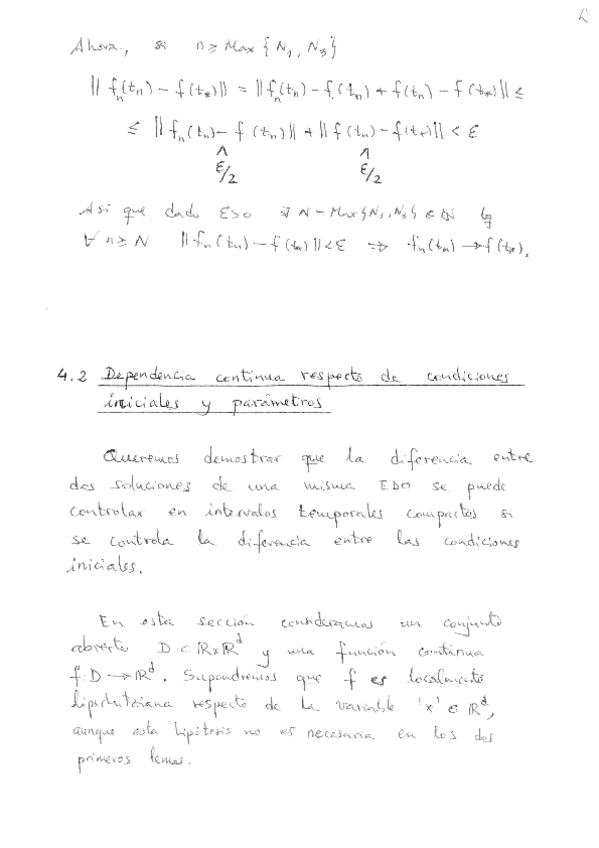 Ahora, si n ≥ Max { N₁, N₂ }
|| fₙ(tₙ) - f(t*) || = || fₙ(tₙ) - f(tₙ) + f(tₙ) - f(t*) || ≤
≤ || fₙ(tₙ) - f(tₙ) || + || f(tₙ) - f(t*) || < ε
∧ ∧
ε/2 ε/2
Así que dado ε>0 ∃ N = Max{N₁, N₂} ∈ ℕ tq
∀ n ≥ N || fₙ(tₙ) - f(t*) || < ε ⇒ fₙ(tₙ) → f(t*).
4.2 Dependencia continua respecto de condiciones
iniciales y parámetros
Queremos demostrar que la diferencia entre
dos soluciones de una misma EDO se puede
controlar en intervalos temporales compactos si
se controla la diferencia entre las condiciones
iniciales.
En esta sección consideramos un conjunto
abierto D ⊂ ℝ×ℝᵈ y una función continua
f: D → ℝᵈ. Supondremos que f es localmente
lipschitziana respecto de la variable 'x' ∈ ℝᵈ,
aunque esta hipótesis no es necesaria en los dos
primeros lemas.